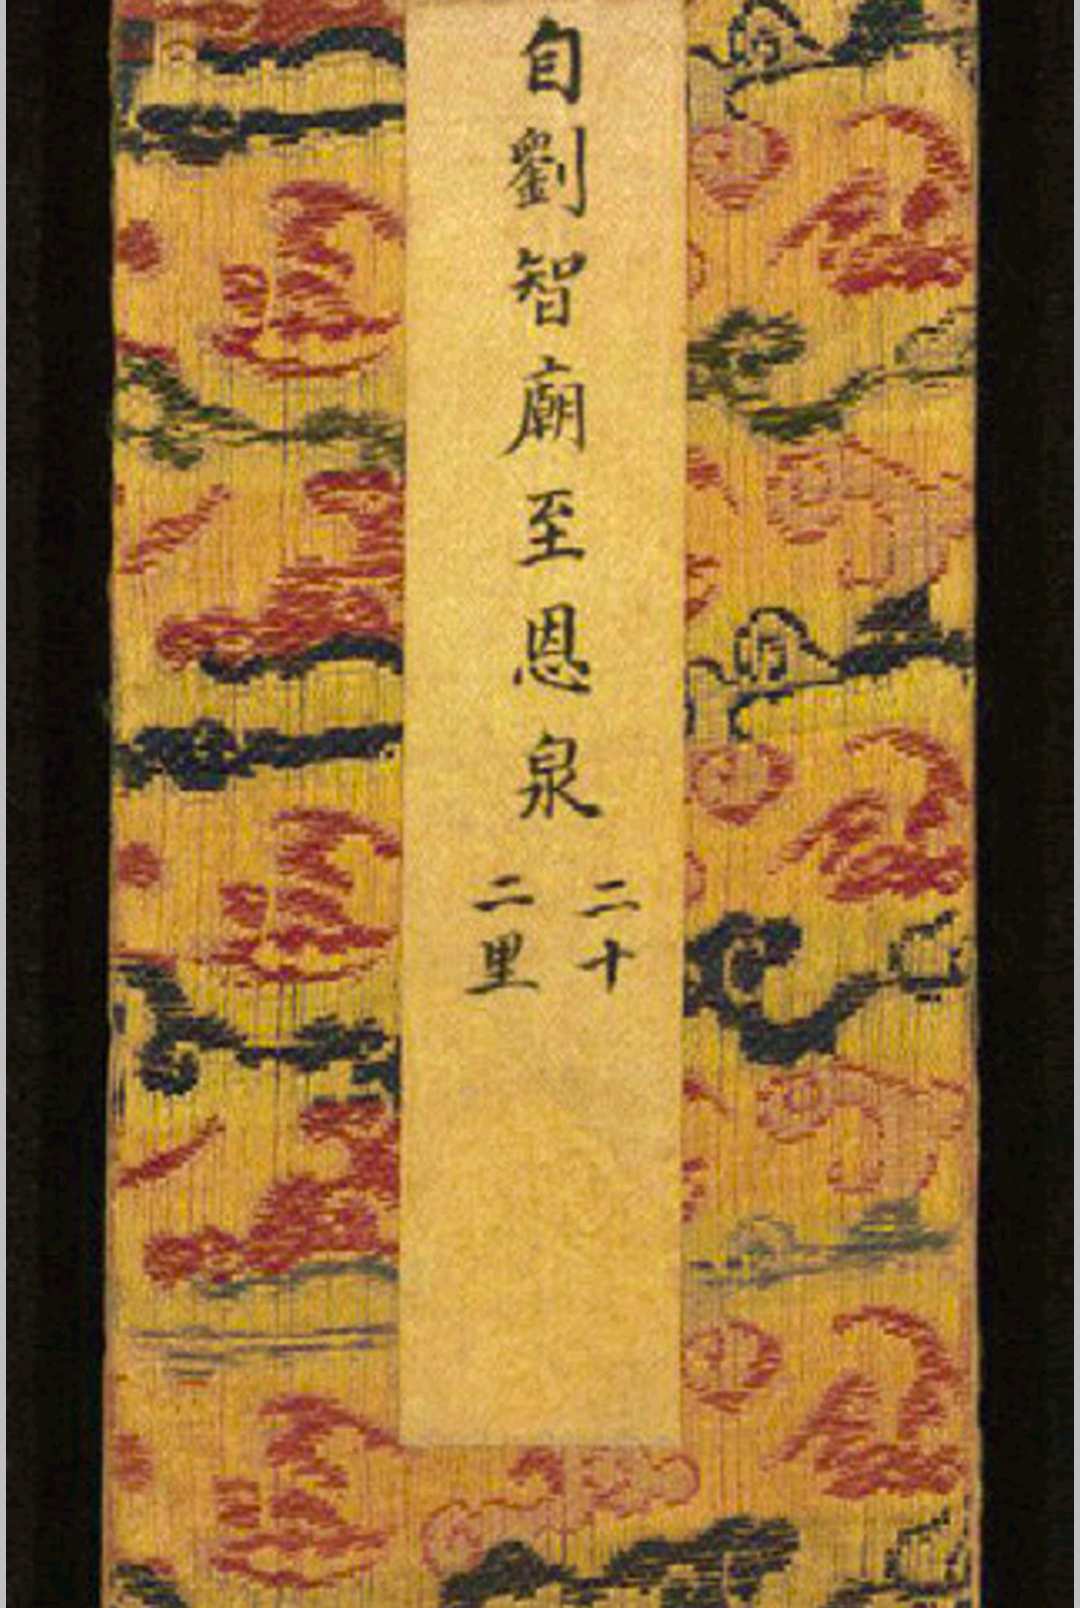 自劉智廟至恩泉
二十
二里